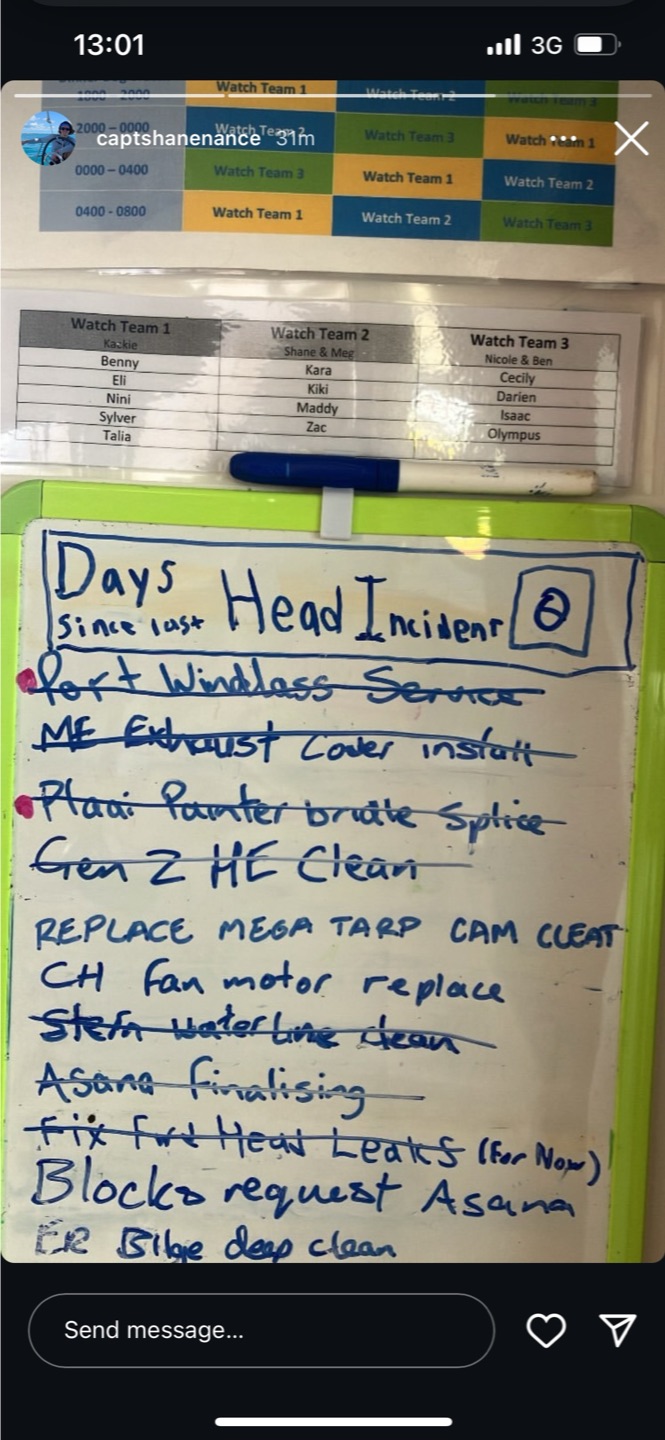 13:01
3G
1800 - 2000 Watch Team 1 Watch Team 2 Watch Team 3
captshanenance 31m
2000 – 0000 Watch Team 2 Watch Team 3 Watch Team 1
0000 – 0400 Watch Team 3 Watch Team 1 Watch Team 2
0400 - 0800 Watch Team 1 Watch Team 2 Watch Team 3
Watch Team 1 Watch Team 2 Watch Team 3
Shane & Meg Nicole & Ben
Benny Kara Cecily
Eli Kiki Darien
Nini Maddy Isaac
Sylver Zac Olympus
Talia
Days since last Head Incident 0
Port Windlass Service
ME Exhaust Cover install
Plaai Painter bridle Splice
Gen 2 HE Clean
REPLACE MEGA TARP CAM CLEAT
CH fan motor replace
Stern waterline clean
Asana finalising
Fix Fwd Head Leaks (For Now)
Blocks request Asana
ER Bilge deep clean
Send message...